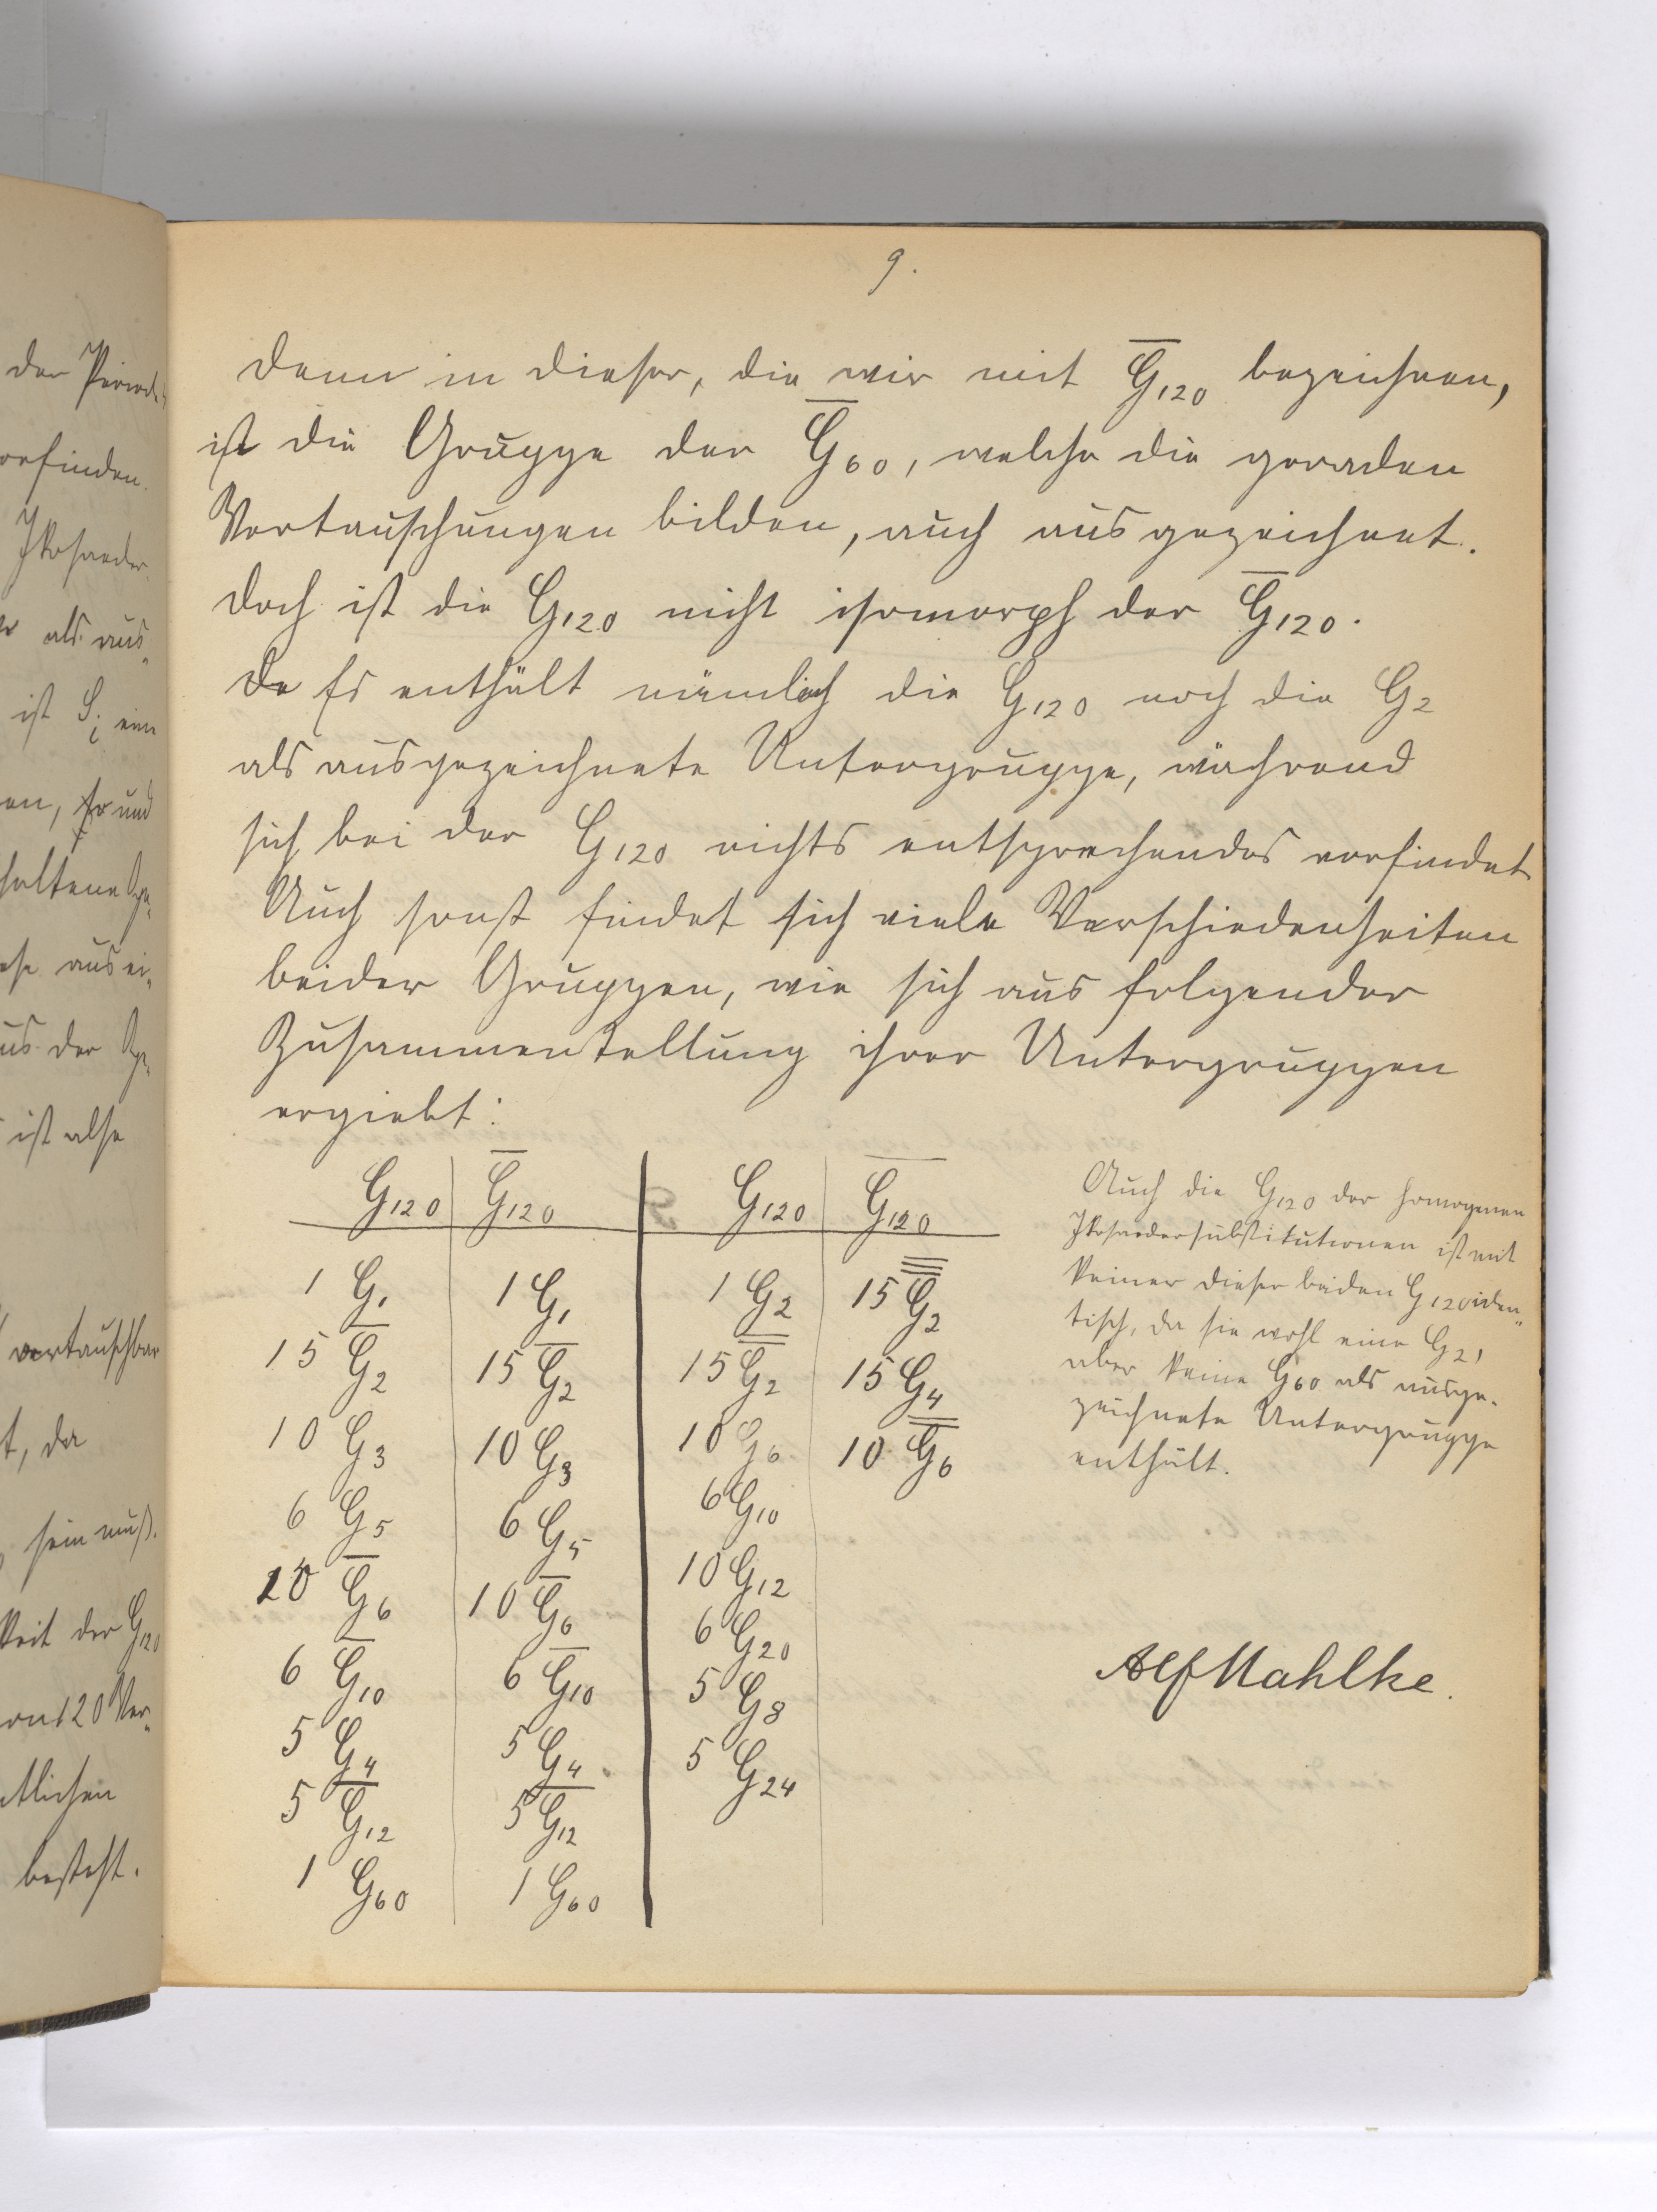 der Period
vorfinden.
Ikosaeder
als aus„
ist S_i ein
en, so und
haltene
aus ei„
us der
ist also
vertauschbar
t, da
sein muß.
keit der G120
von 120 Ver„
tlichen
besteht.
9.
Denn in dieser, die wir mit G̅120 bezeichnen,
ist die Gruppe der G̅60, welche die geraden
Vertauschungen bilden, auch ausgezeichnet.
Doch ist die G120 nicht isomorph der G̅120.
Da Es enthält nämlich die G120 noch die G2
als ausgezeichnete Untergruppe, während
sich bei der G120 nichts entsprechendes vorfindet
Auch sonst findet sich viele Verschiedenheiten
beider Gruppen, wie sich aus folgender
Zusammenstellung ihrer Untergruppen
ergiebt:
G120 G̅120 G120 G̅120
1 G1 1 G1 1 G2 15 G̿2
15 G̅2 15 G̅2 15 G̿2 15 G4
10 G3 10 G3 10 G6 10 G̿6
6 G5 6 G5 6 G10
10 G̅6 10 G̅6 10 G12
6 G̅10 6 G̅10 6 G20
5 G4 5 G4 5 G8
5 G̅12 5 G̅12 5 G24
1 G60 1 G60
Auch die G120 der homogenen
Ikosaedersubstitutionen ist mit
keiner dieser beiden G120 iden„
tisch, da sie wohl eine G2,
aber keine G60 als ausge„
zeichnete Untergruppe
enthält.
Alf Mahlke.